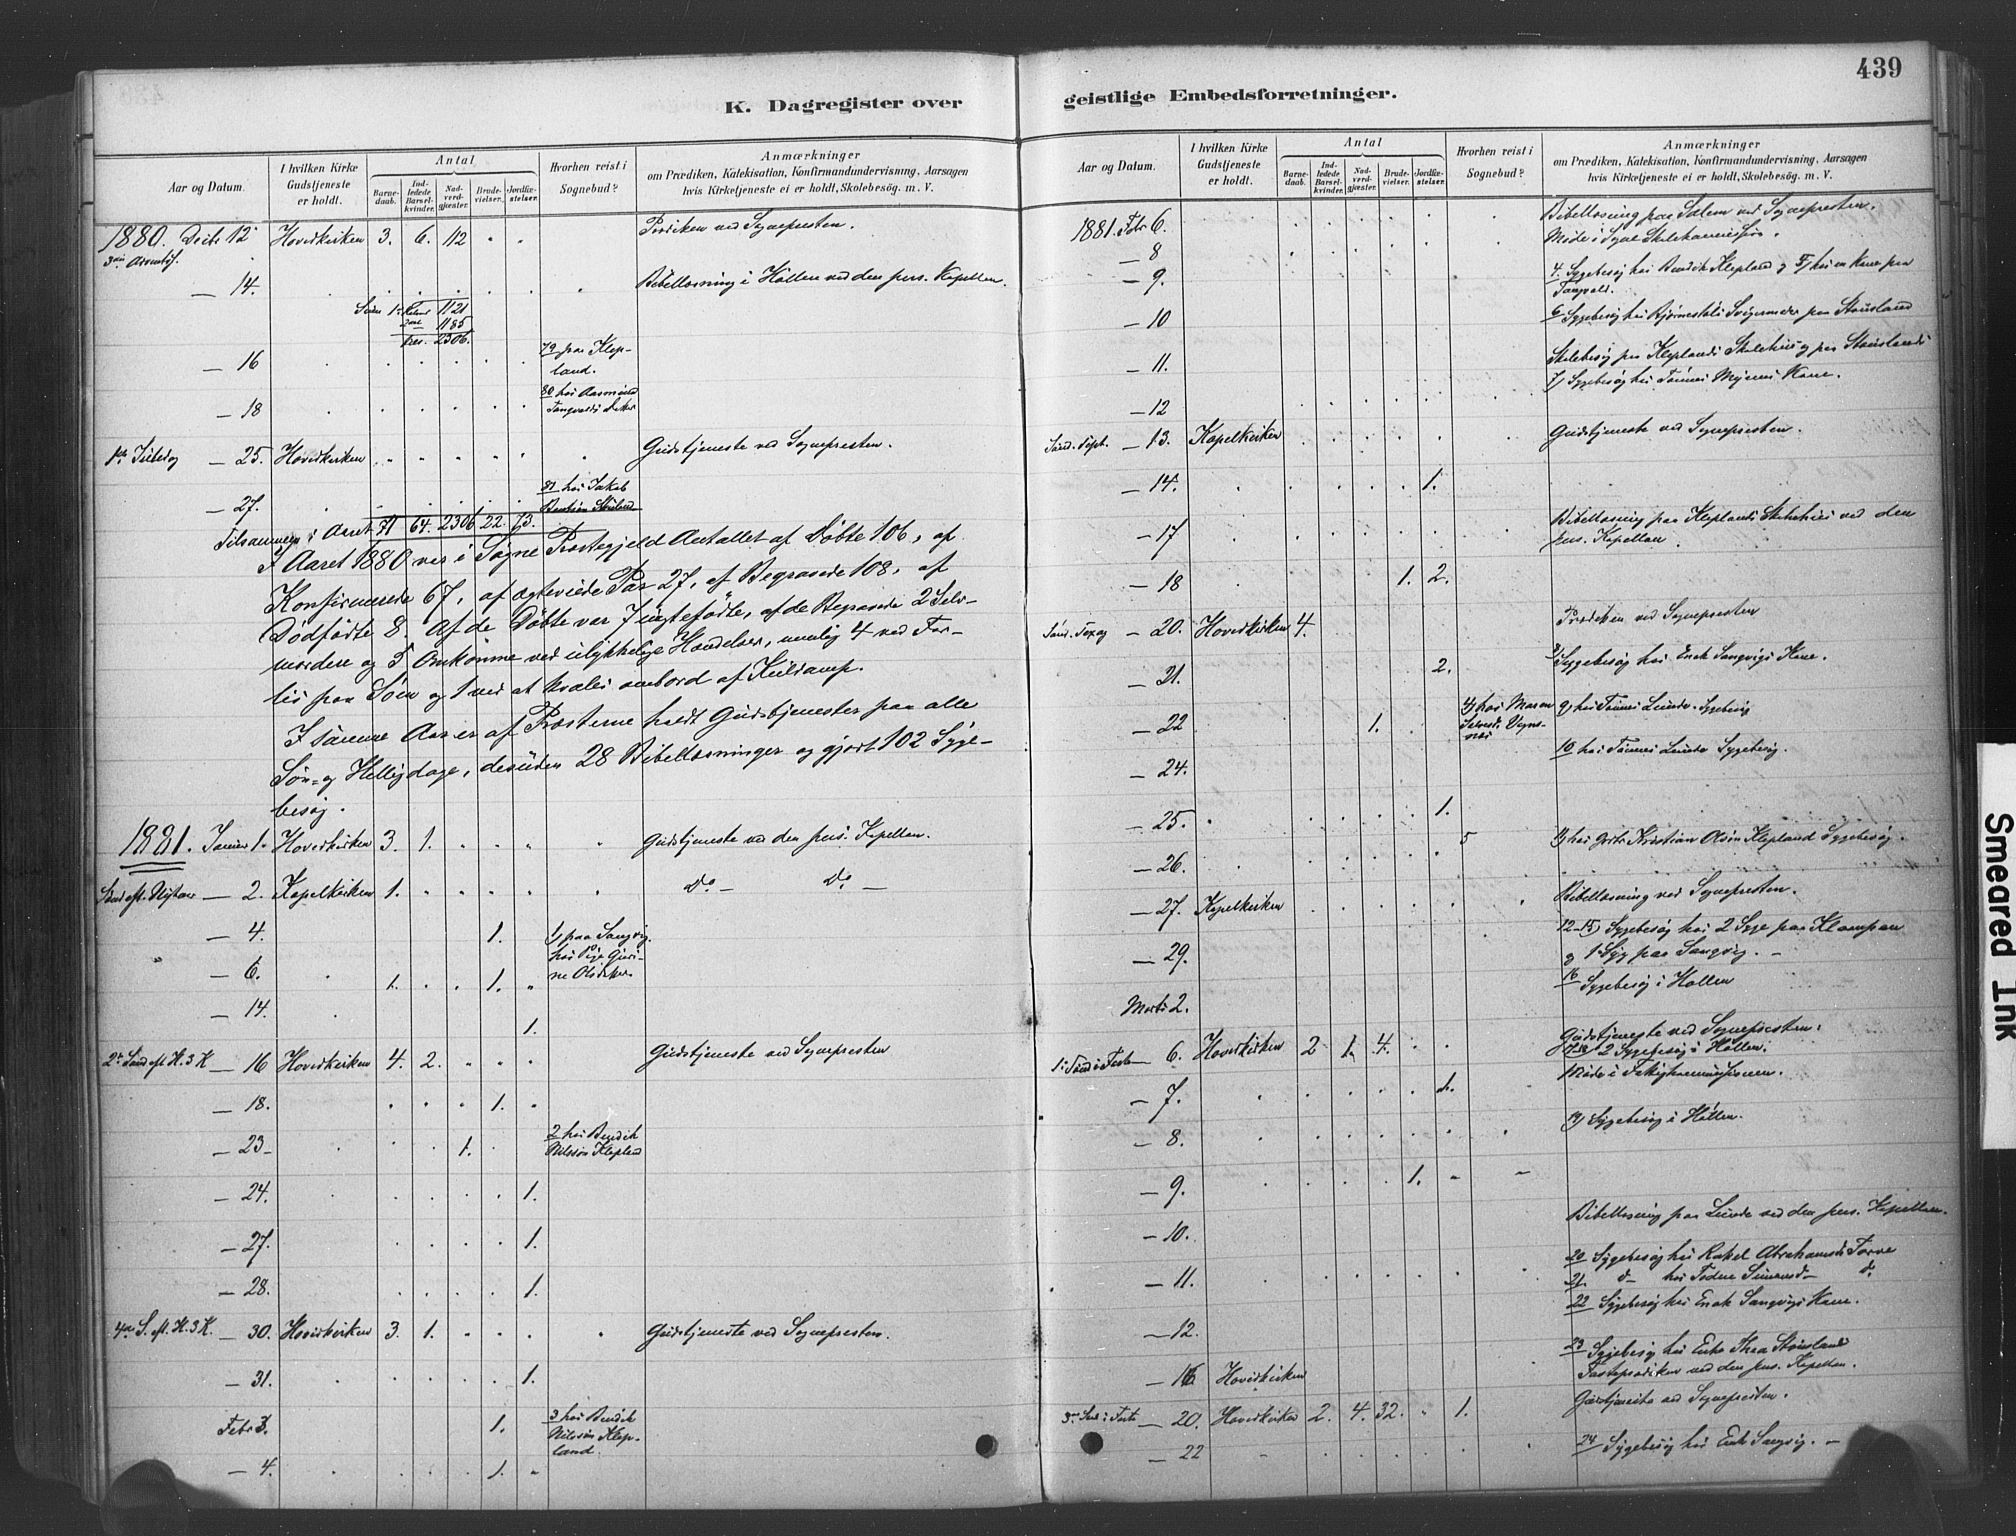 439
K. Dagregister over geistlige Embedsforretninger.
Aar og Datum.
I hvilken Kirke Gudstjeneste er holdt.
Antal
Barnedaab.
Indledede Barselkvinder.
Nadverdgjester.
Brudevielser.
Jordfæstelser.
Hvorhen reist i Sognebud?
Anmærkninger
om Prædiken, Katekisation, Konfirmandundervisning, Aarsagen
hvis Kirketjeneste ei er holdt, Skolebesøg. m. V.
1880. Decbr 12 Hovedkirken 3. 6. 112 Prædiken ved Sognepresten.
— 14. Bibellæsning i Høllen ved den pers. Kapellan.
1121
1185
2306.
— 16 79 paa Klepland.
— 18 80 hos Aasmund Tangvalds Enke
1ste Juledag — 25. Hovedkirken Gudstjeneste ved Sognepresten.
— 27. 81 hos Jakob
Tilsammen i Aaret 71 64. 2306 22. 73.
I Aaret 1880 var i Søgne Præstegjeld Antallet af Døbte 106, af
Konfirmerede 67, af ægteviede Par 27, af Begravede 108, af
Dødfødte 8. Af de Døbte var 7 uægtefødte, af de Begravede 2 Selv-
mordere og 5 Omkomne ved ulykkelige Hændelser, nemlig 4 ved For-
lis paa Søen og 1 ved at kvæles ombord af Kuldamp.
I samme Aar er af Præsterne holdt Gudstjenester paa alle
Søn- og Helligdage, desuden 28 Bibellæsninger og gjort 102 Syge-
besøg.
1881. Januar 1. Hovedkirken 3. 1. Gudstjeneste ved den pers. Kapellan.
Sønd eft. Nytaar — 2. Kapelkirken 1. Do — Do —
— 4. 1. 1) paa Sangvig
— 6. 1. 1. hos Pige Gurine Olsdatter
— 14. 1.
2n Sønd eft H. 3 K — 16 Hovedkirken 4. 2. Gudstjeneste ved Sognepresten
— 18. 1.
— 23 1. 2 hos Bendik Nilssøn Klepland
— 24. 1.
— 27. 1.
— 28. 1.
4de S. eft. H. 3 K. — 30. Hovedkirken 3. 1. Gudstjeneste ved Sognepresten.
— 31. 1.
Febr 3. 1. 3 hos Bendik Nilssøn Klepland.
— 4. 1.
Aar og Datum.
I hvilken Kirke Gudstjeneste er holdt.
Antal
Barnedaab.
Indledede Barselkvinder.
Nadverdgjester.
Brudevielser.
Jordfæstelser.
Hvorhen reist i Sognebud?
Anmærkninger
om Prædiken, Katekisation, Konfirmandundervisning, Aarsagen
hvis Kirketjeneste ei er holdt, Skolebesøg. m. V.
1881. Febr 6. Bibellæsning paa Salem ved Sognepresten.
— 8 Møde i Søgne Skolekommission.
— 9. 4. Sygebesøg hos Bendik Klepland og 5) hos en Kone paa Tangvald.
— 10 6 Sygebesøg hos Bjørnestøls Svigermoder paa Stousland
— 11. Skolebesøg paa Kleplands Skolehus og paa Stouslands
— 12 7) Sygebesøg hos Tønnes Kone.
Sønd. Sept. — 13. Kapelkirken Gudstjeneste ved Sognepresten.
— 14. 1.
— 17 Bibellæsning paa Kleplands Skolehus ved den pers. Kapellan.
— 18 1. 2.
— 20. Hovedkirken 4. Prædiken ved Sognepresten
— 21. 2. Sygebesøg hos Enok Sangvigs Kone.
— 22 1. 4) hos Maren 9) hos Tønnes Lunde Sygebesøg
— 24. 10 hos Tønnes Lunde Sygebesøg.
— 25. 1.
— 26. 5 hos Kristian Olsøn Klepland Sygebesøg.
— 27. Kapelkirken Bibellæsning ved Sognepresten.
— 29. 12-15) Sygebesøg hos 2 Syge paa Klompan
1 Syg paa Sangvig. —
Marts 2. 16 Sygebesøg i Høllen
1. Sønd i Faste 6. Hovedkirken 2 1. 4. Gudstjeneste ved Sognepresten.
2 Sygebesøg i Høllen.
— 7. 1. Møde i Fattigkommissionen.
— 8. 19) Sygebesøg i Høllen.
— 9. 1.
— 10. Bibellæsning paa Lunde ved den pers. Kapellan.
— 11. 20 Sygebesøg hos Rakel Abrahamsd. Torve
21. d— hos Simonsd— d.
— 12. 22 Sygebesøg hos Enok Sangvigs Kone.
23 Sygebesøg hos Enke Thea Stousland
— 16 Hovedkirken Fasteprædiken ved den pers. Kapellan.
3die Sønd i Faste — 20. Hovedkirken 2. 4. 32. 1. Gudstjeneste ved Sognepresten.
— 22 24 Sygebesøg hos Enok Sangvig. —
Smeared Ink